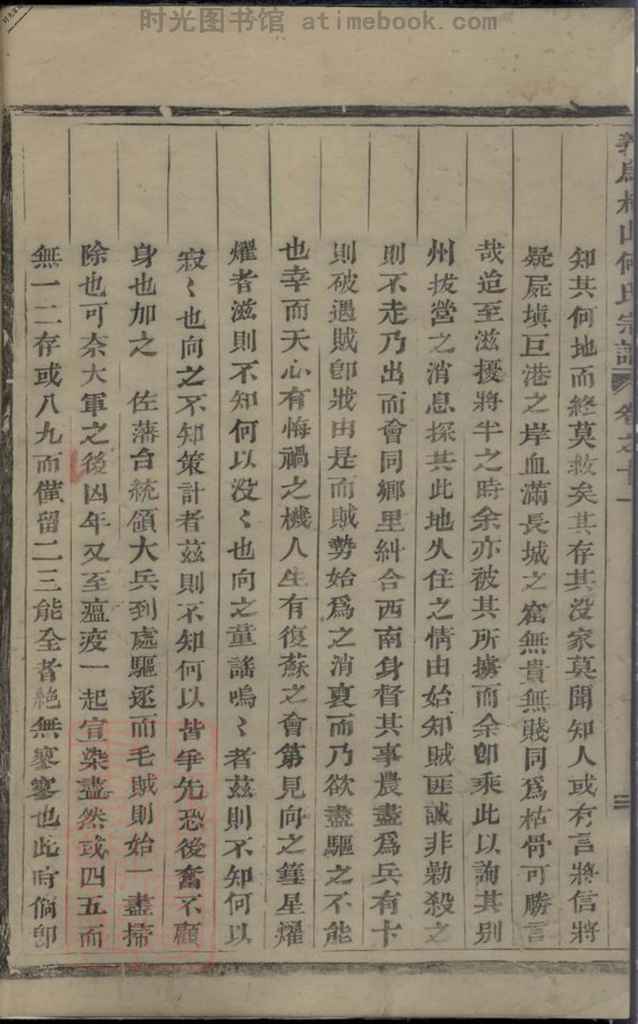 时光图书馆 atimebook.com
何氏宗譜 卷之十一
知其何地而終莫救矣其存其没家莫聞知人或有言將信將
疑屍塡巨港之岸血滿長城之窟無貴無賤同爲枯骨可勝言
哉迨至滋擾將半之時余亦被其所擄而余卽乘此以詢其别
州拔營之消息探其此地久住之情由始知賊匪誠非勦殺之
則不走乃出而會同鄉里糾合西南身督其事農盡爲兵有卡
則破遇賊卽戕由是而賊勢始爲之消衰而乃欲盡驅之不能
也幸而天心有悔禍之機人生有復蘇之會第見向之鐘星燿
燿者滋則不知何以没〻也向之童謠鳴〻者茲則不知何以
寂〻也向之不知策計者茲則不知何以皆爭先恐後奮不顧
身也加之 佐藩台統領大兵到處驅逐而毛賊則始一盡掃
除也可奈大軍之後凶年又至瘟疫一起宣染盡然或四五而
無一二存或八九而僅留二三能全者絶無寥寥也此時倘卽